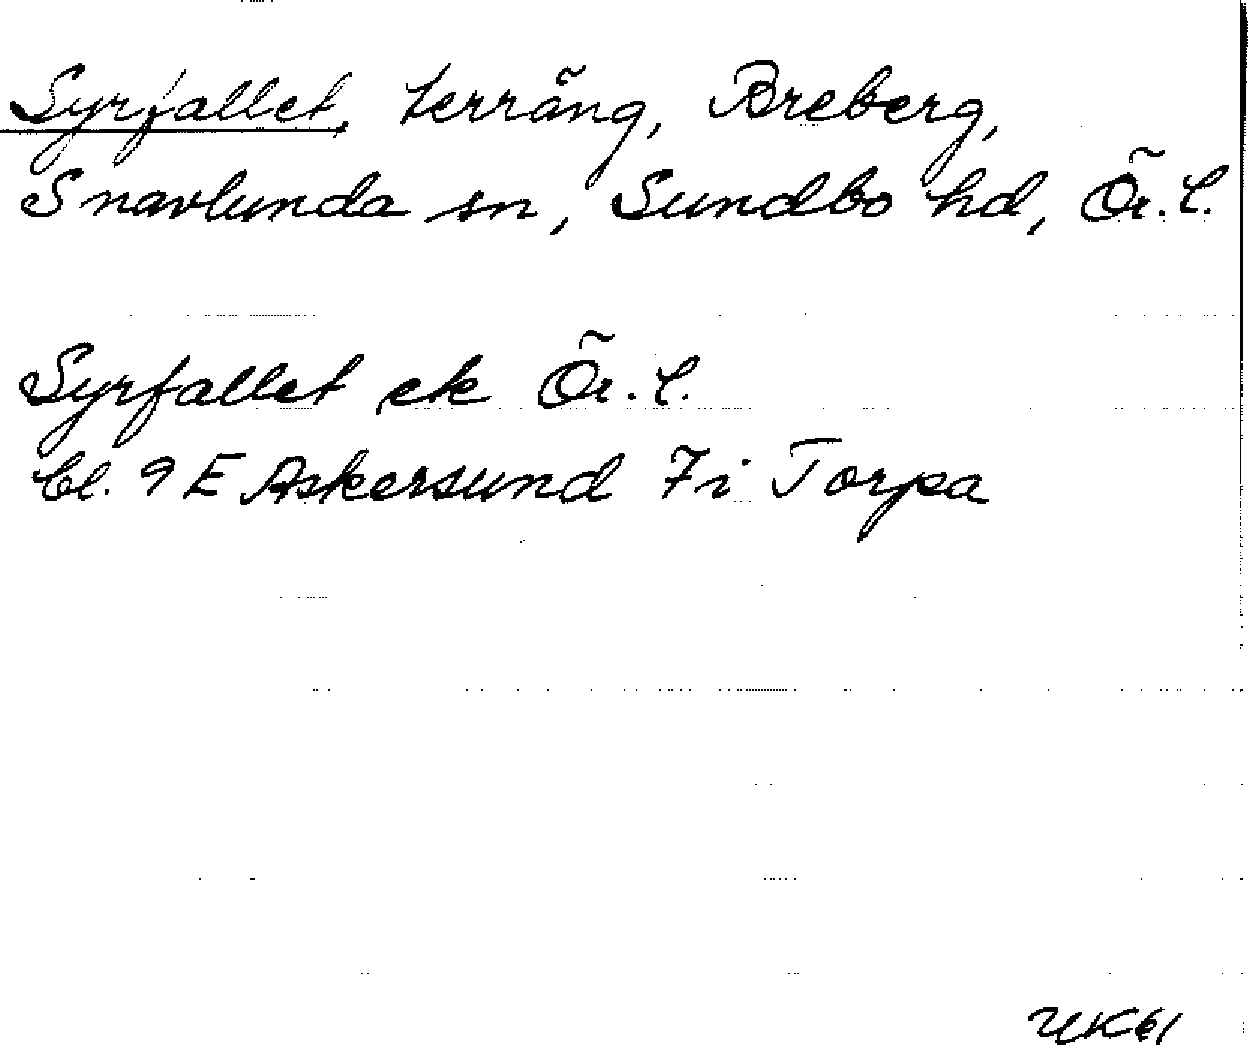 Syrfallet, terräng, Breberg,
Snavlunda sn, Sundbo hd, Ör. l.
Syrfallet ek Ör. l.
bl. 9 E Askersund 7i Torpa
UK61